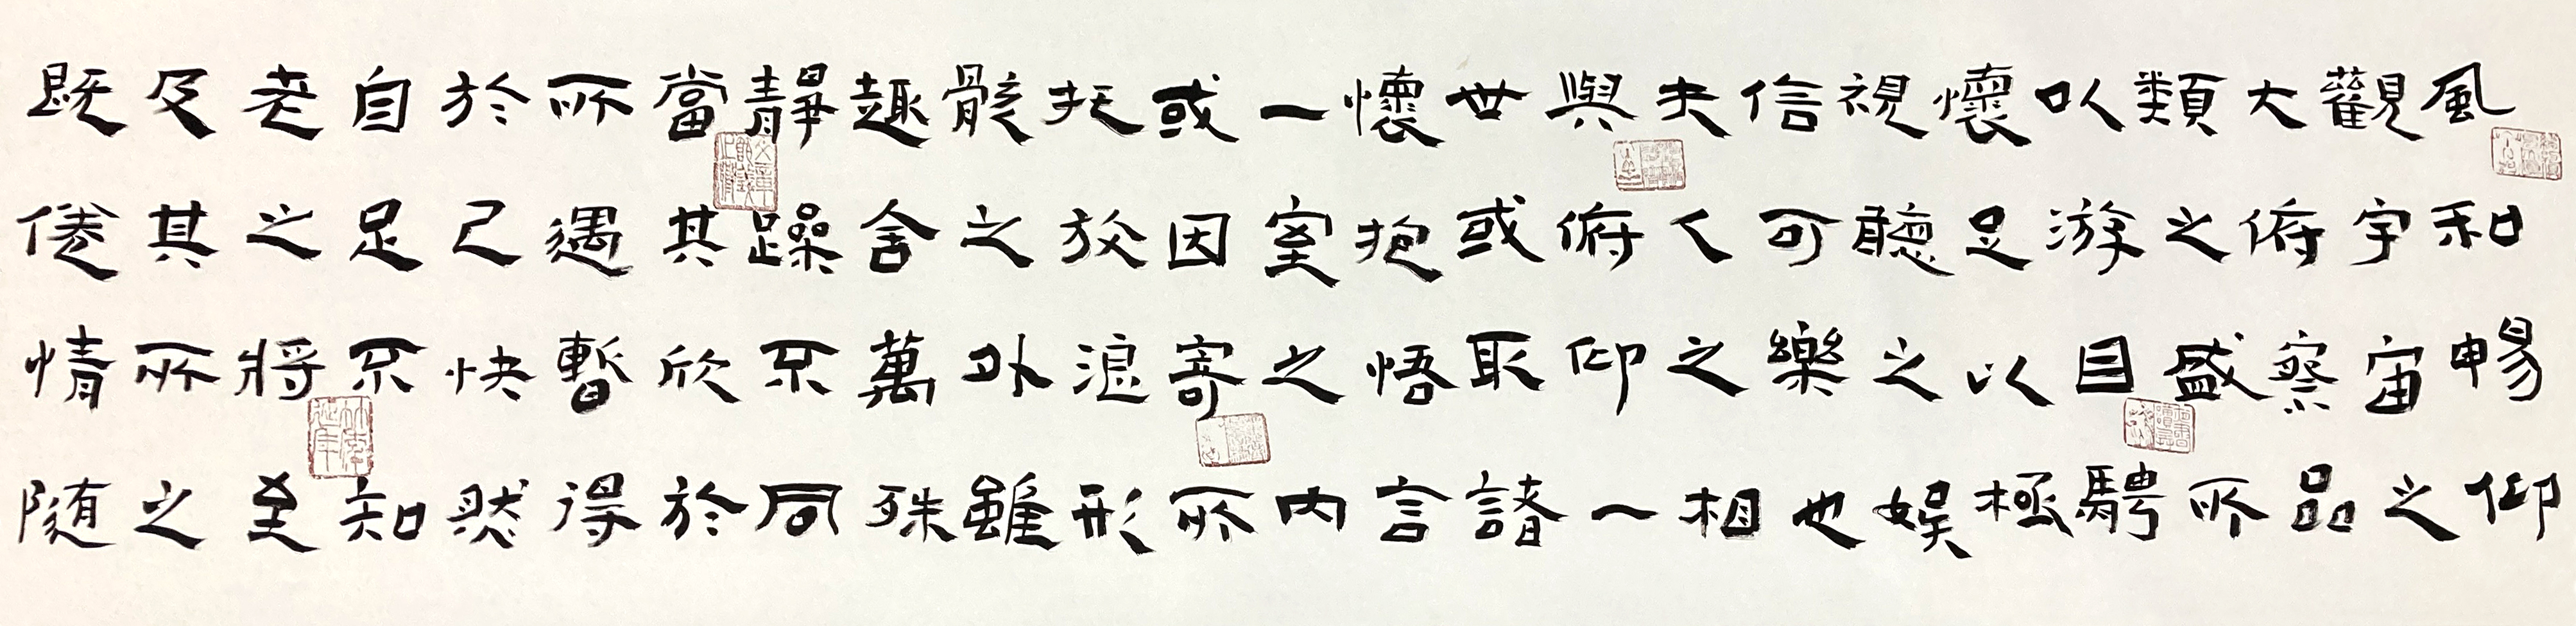 風和暢仰
觀宇宙之
大俯察品
類之盛所
以游目騁
懷足以極
視聽之娛
信可樂也
夫人之相
與俯仰一
世或取諸
懷抱悟言
一室之內
或因寄所
托放浪形
骸之外雖
趣舍萬殊
靜躁不同
當其欣於
所遇暫得
於己快然
自足不知
老之將至
及其所之
既倦情隨